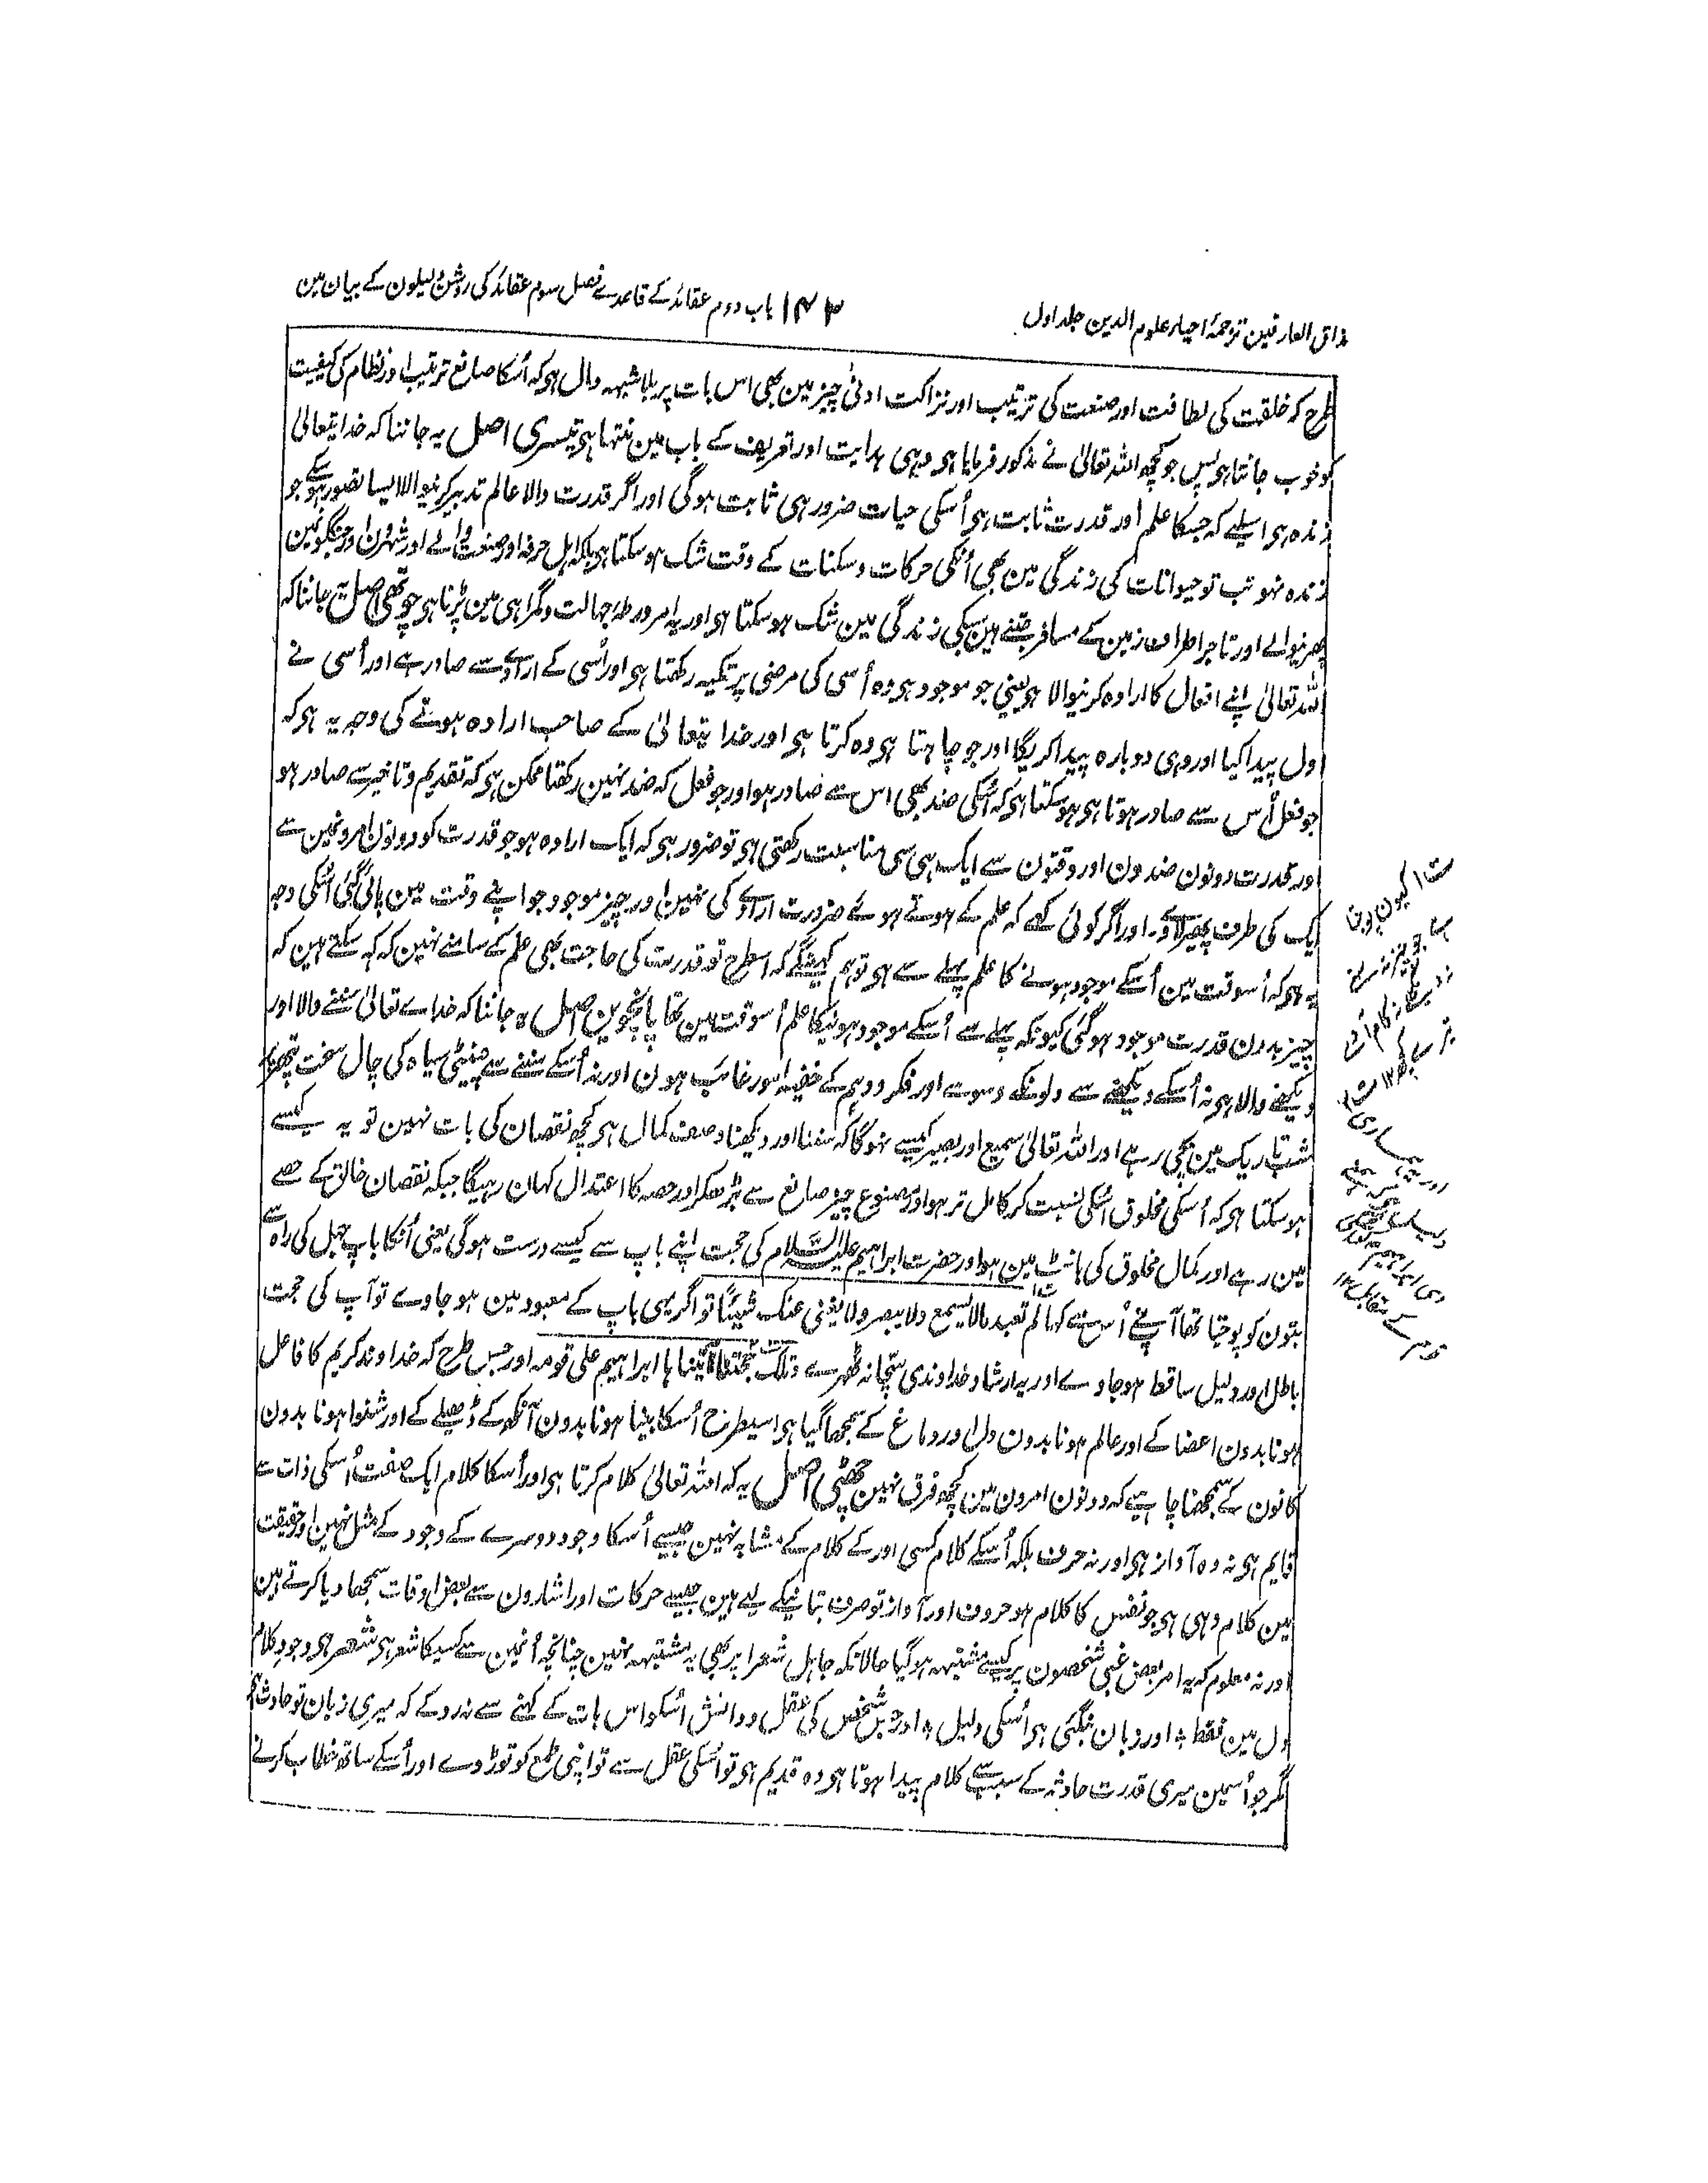 مذاق العارفین ترجمۂ احیاء علوم الدین جلد اول
۱۴۳
باب دوم عقائد کے قاعدے فصل سوم عقائد کی روشن دلیلون کے بیان مین
طرح کہ خلقت کی لطافت اور صنعت کی ترتیب اور نزاکت ادنیٰ چیز مین بھی اس بات پر بلا شبہہ دال ہو کہ اُسکا صانع ترتیب اور نظام کی کیفیت
کو خوب جانتا ہو پس جو کچھ اللہ تعالیٰ نے مذکور فرمایا ہو وہی ہدایت اور تعریف کے باب مین منتہا ہو تیسری اصل یہ جاننا کہ خدایتعالیٰ
زندہ ہو اسلیے کہ جسکا علم اور قدرت ثابت ہو اُسکی حیات ضرور ہی ثابت ہوگی اور اگر قدرت والا عالم تدبیر کرنیوالا ایسا تصور ہو سکے جو
زندہ نہو تب تو حیوانات کی زندگی مین بھی اُنکی حرکات و سکنات کے وقت شک ہو سکتا ہو بلکہ اہل حرفہ اور صنعت والے اور شہرون اور جنگلون مین
پھرنیوالے اور تاجر اطراف زمین کے مسافر جتنے ہین سبکی زندگی مین شک ہو سکتا ہو اور یہ امر ورطۂ جہالت و گمراہی مین پڑنا ہو چوتھی اصل یہ جاننا کہ
اللہ تعالیٰ اپنے افعال کا ارادہ کرنیوالا ہو یعنی جو موجود ہو وہ اُسی کی مرضی پر تکیہ رکھتا ہو اور اُسی کے ارادے سے صادر ہے اور اُسی نے
اول پیدا کیا اور وہی دوبارہ پیدا کریگا اور جو چاہتا ہو وہ کرتا ہو اور خدایتعالیٰ کے صاحب ارادہ ہونے کی وجہ یہ ہو کہ
جو فعل اُس سے صادر ہوتا ہو ہو سکتا ہو کہ اُسکی ضد بھی اس سے صادر ہو اور جو فعل کہ ضد نہین رکھتا ممکن ہو کہ تقدیم و تاخیر سے صادر ہو
اور قدرت دونون ضدون اور وقتون سے ایک ہی سی مناسبت رکھتی ہو تو ضرور ہو کہ ایک ارادہ ہو جو قدرت کو دونون امرونمین سے
ایک کی طرف پھیر لاوے۔ اور اگر کوئی کہے کہ علم کے ہوتے ہوئے ضرورت ارادے کی نہین اور چیز موجود جو اپنے وقت مین پائی گئی اُسکی وجہ
یہ ہو کہ اُسوقت مین اُسکے موجود ہونے کا علم پہلے سے ہو تو ہم کہینگے کہ اسطرح تو قدرت کی حاجت بھی علم کے سامنے نہین کہ کہہ سکتے ہین کہ
چیز بدون قدرت موجود ہوگئی کیونکہ پہلے سے اُسکے موجود ہونیکا علم اُسوقت مین تھا پانچوین اصل جاننا کہ خداے تعالیٰ سننے والا اور
دیکھنے والا ہو نہ اُسکے دیکھنے سے دلونکے وسوسے اور فکر و وہم کے خفیہ امور غائب ہون اور نہ اُسکے سننے سے چینٹی سیاہ کی چال سخت پتھر پر
شب تاریک مین بچی رہے اور اللہ تعالیٰ سمیع اور بصیر کیسے نہوگا کہ سننا اور دیکھنا وصف کمال ہو کچھ نقصان کی بات نہین تو یہ کیسے
ہو سکتا ہو کہ اُسکی مخلوق اُسکی نسبت کر کامل تر ہو اور مصنوع چیز صانع سے بڑھکر اور حصہ کا اعتدال کہان رہیگا جبکہ نقصان خالق کے حصے
مین رہے اور کمال مخلوق کی بانٹ مین ہو اور حضرت ابراہیم علیہ السّلام کی حجت اپنے باپ سے کیسے درست ہوگی یعنی اُنکا باپ جہل کی راہ سے
بتون کو پوجتا تھا آپنے اُس سے کہا لم تعبد مالا یسمع ولا یبصر ولا یغنی عنک شیئًا تو اگر یہی باپ کے معبود مین ہو جاوے تو آپ کی حجت
باطل اور دلیل ساقط ہو جاوے اور یہ ارشاد خداوندی سچا نہ ٹھہرے و تلک حجتنا آتیناہا ابراہیم علی قومہ اور جس طرح کہ خداوند کریم کا فاعل
ہونا بدون اعضا کے اور عالم ہونا بدون دل اور دماغ کے سمجھا گیا ہو اسیطرح اُسکا بینا ہونا بدون آنکھ کے ڈھیلے کے اور شنوا ہونا بدون
کانون کے سمجھنا چاہیے کہ دونون امرون مین کچھ فرق نہین چھٹی اصل یہ کہ اللہ تعالیٰ کلام کرتا ہو اور اُسکا کلام ایک صفت اُسکی ذات سے
قایم ہو نہ وہ آواز ہو اور نہ حرف بلکہ اُسکے کلام کسی اور کے کلام کے مشابہ نہین جیسے اُسکا وجود دوسرے کے وجود کے مثل نہین اور حقیقت
مین کلام وہی ہو جو نفس کا کلام ہو حروف اور آواز تو صرف بتانیکے لیے ہین جیسے حرکات اور اشارون سے بعض اوقات سمجھا دیا کرتے ہین
اور نہ معلوم کہ یہ امر بعض غبی شخصون پر کیسے مشتبہ ہو گیا حالانکہ جاہل شعرا پر بھی یہ مشتبہ نہین چنانچہ اُنمین سے کسیکا شعر ہو شعر ہو وجود کلام
دل مین فقط ٭ اور زبان بنگئی ہو اُسکی دلیل ٭ اور جس شخص کی عقل و دانش اُسکو اس بات کے کہنے سے نہ روکے کہ میری زبان تو حادث ہو
مگر جو اُسمین میری قدرت حادثہ کے سبب سے کلام پیدا ہوتا ہو وہ قدیم ہو تو اُسکی عقل سے تو اپنی طمع کو توڑ دے اور اُسکے ساتھ خطاب کرنے